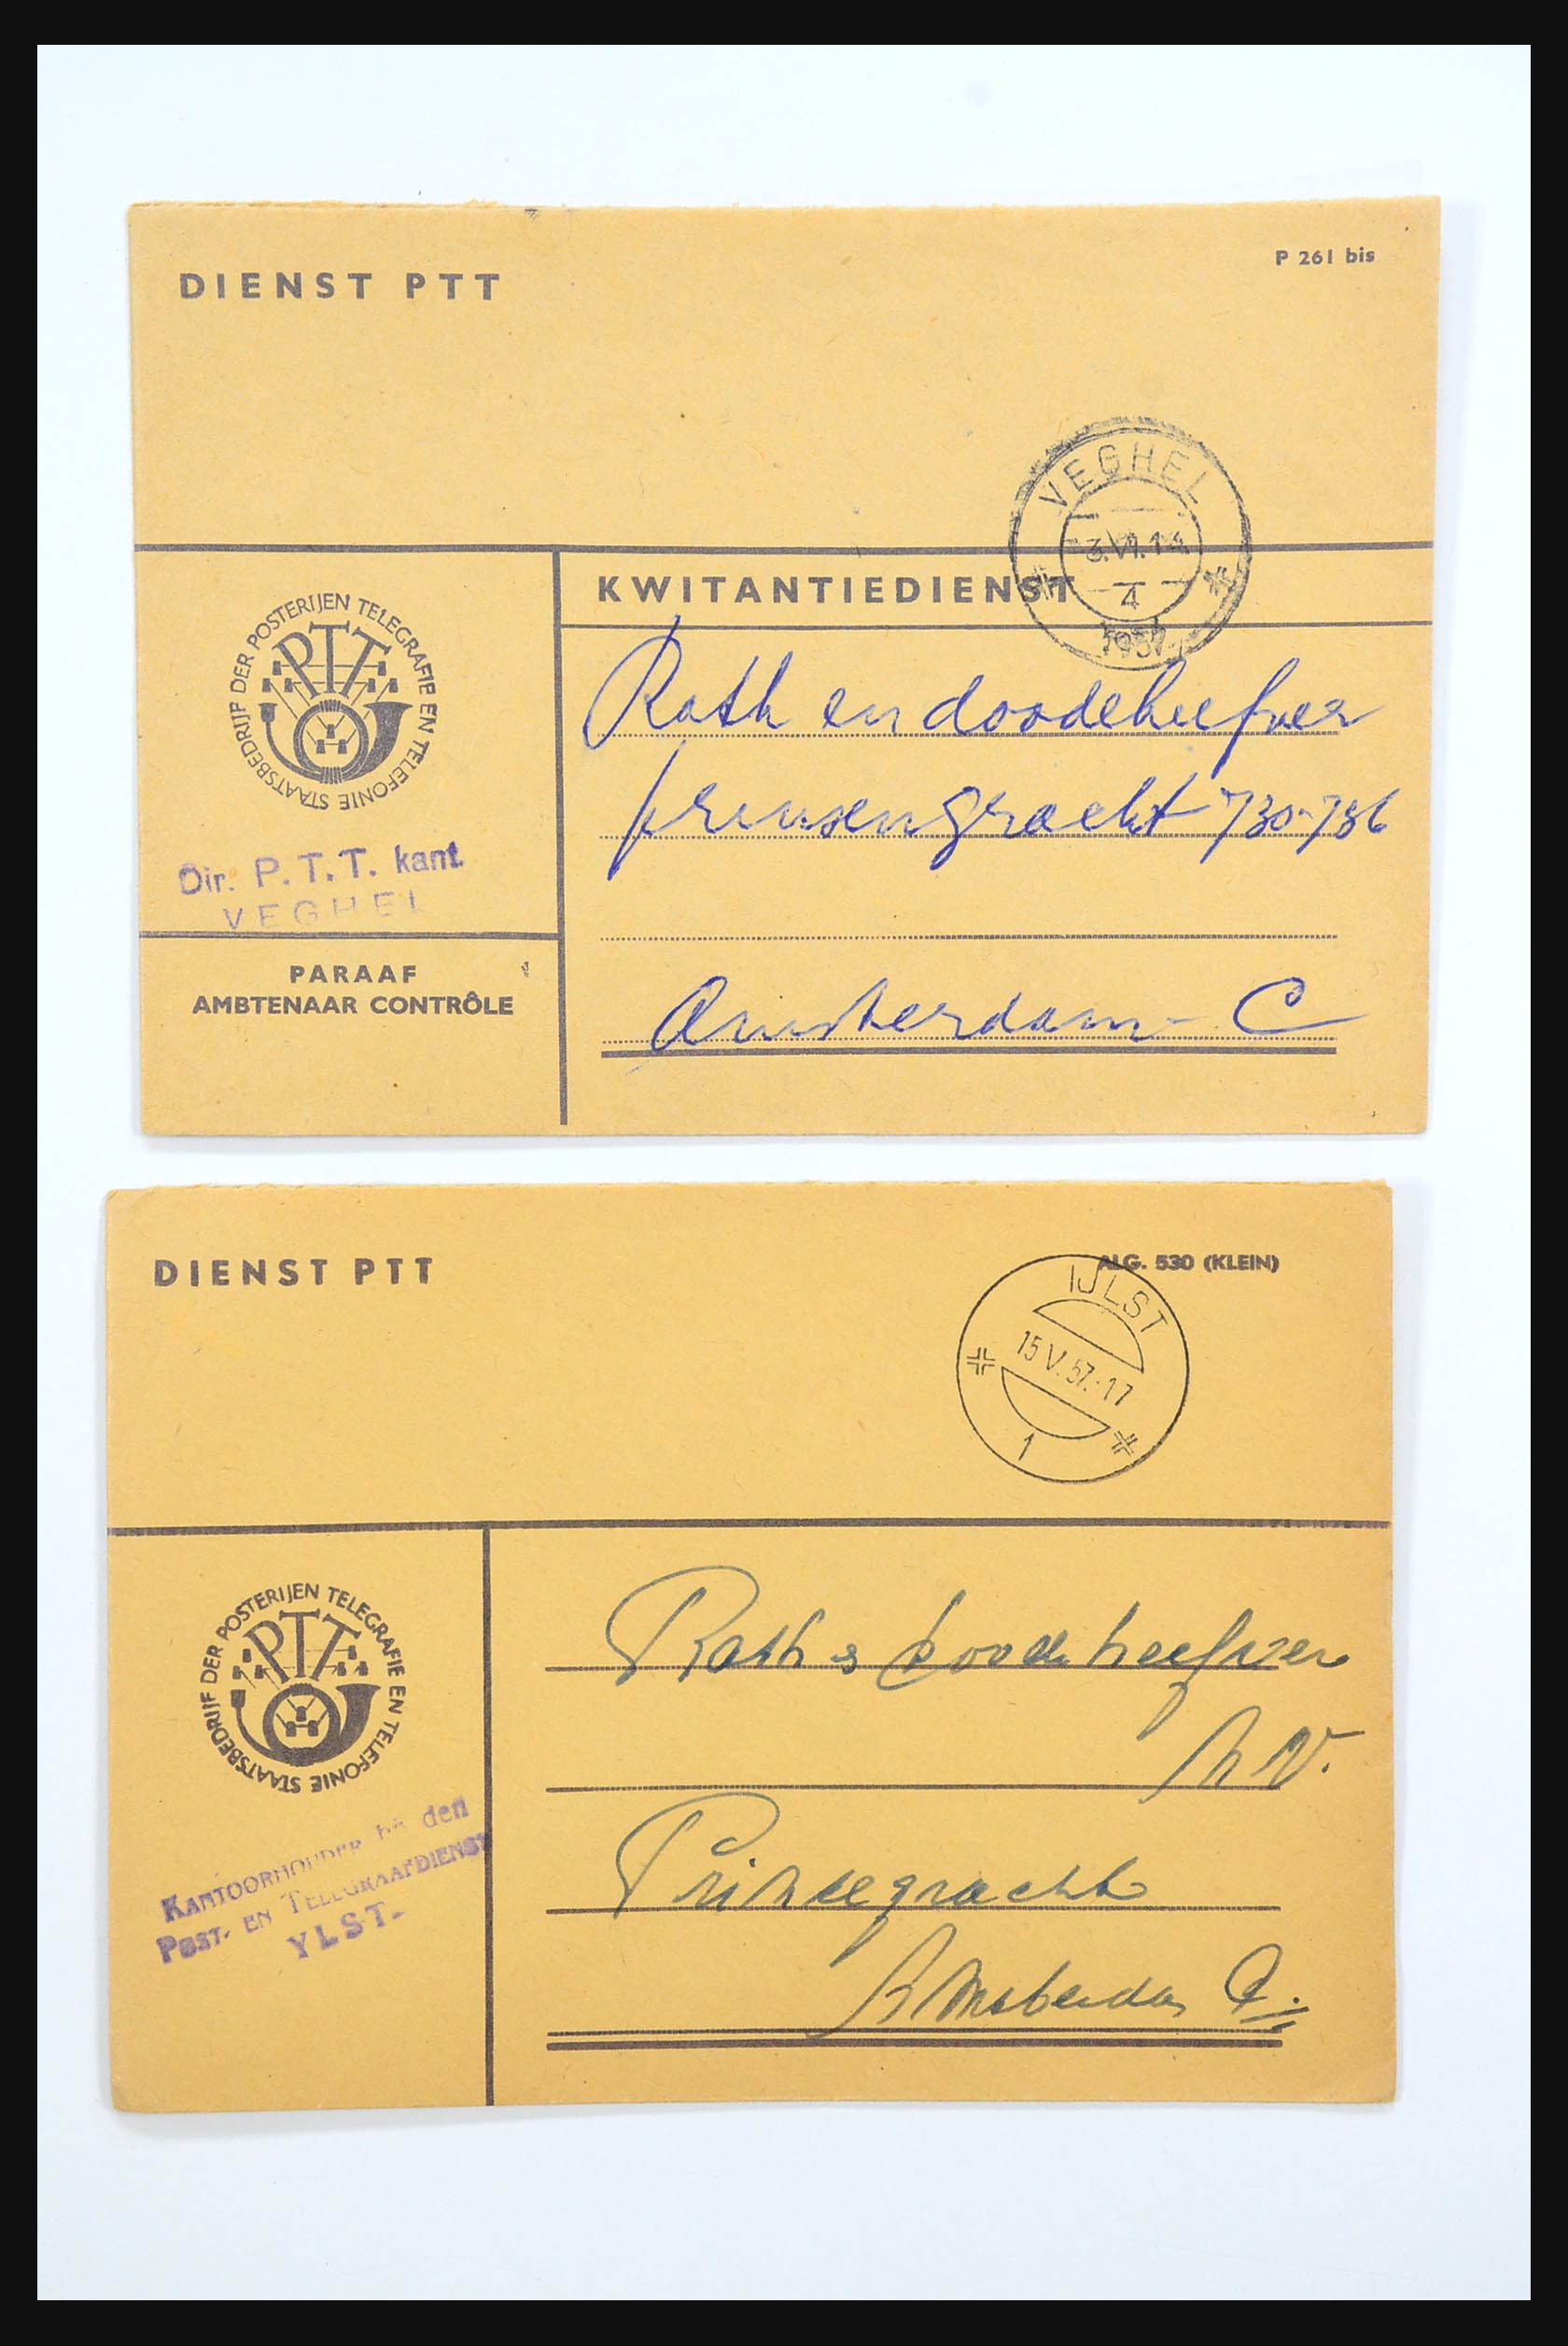 DIENST PTT
P 261 bis
VEGHEL
4
KWITANTIEDIENST
STAATSBEDRIJF DER POSTERIJEN TELEGRAFIE EN TELEFONIE
PTT
Rath en doodeheefver
prinsengracht 730-736
Dir. P.T.T. kant.
VEGHEL
PARAAF
AMBTENAAR CONTRÔLE
Amsterdam - C
DIENST PTT
ALG. 530 (KLEIN)
IJLST
15 V.57.-17
1
STAATSBEDRIJF DER POSTERIJEN TELEGRAFIE EN TELEFONIE
PTT
Rath & doodeheefver
N.V.
Prinsegracht
Amsterdam C.
KANTOORHOUDER den
POST- EN TELEGRAAFDIENST
YLST.